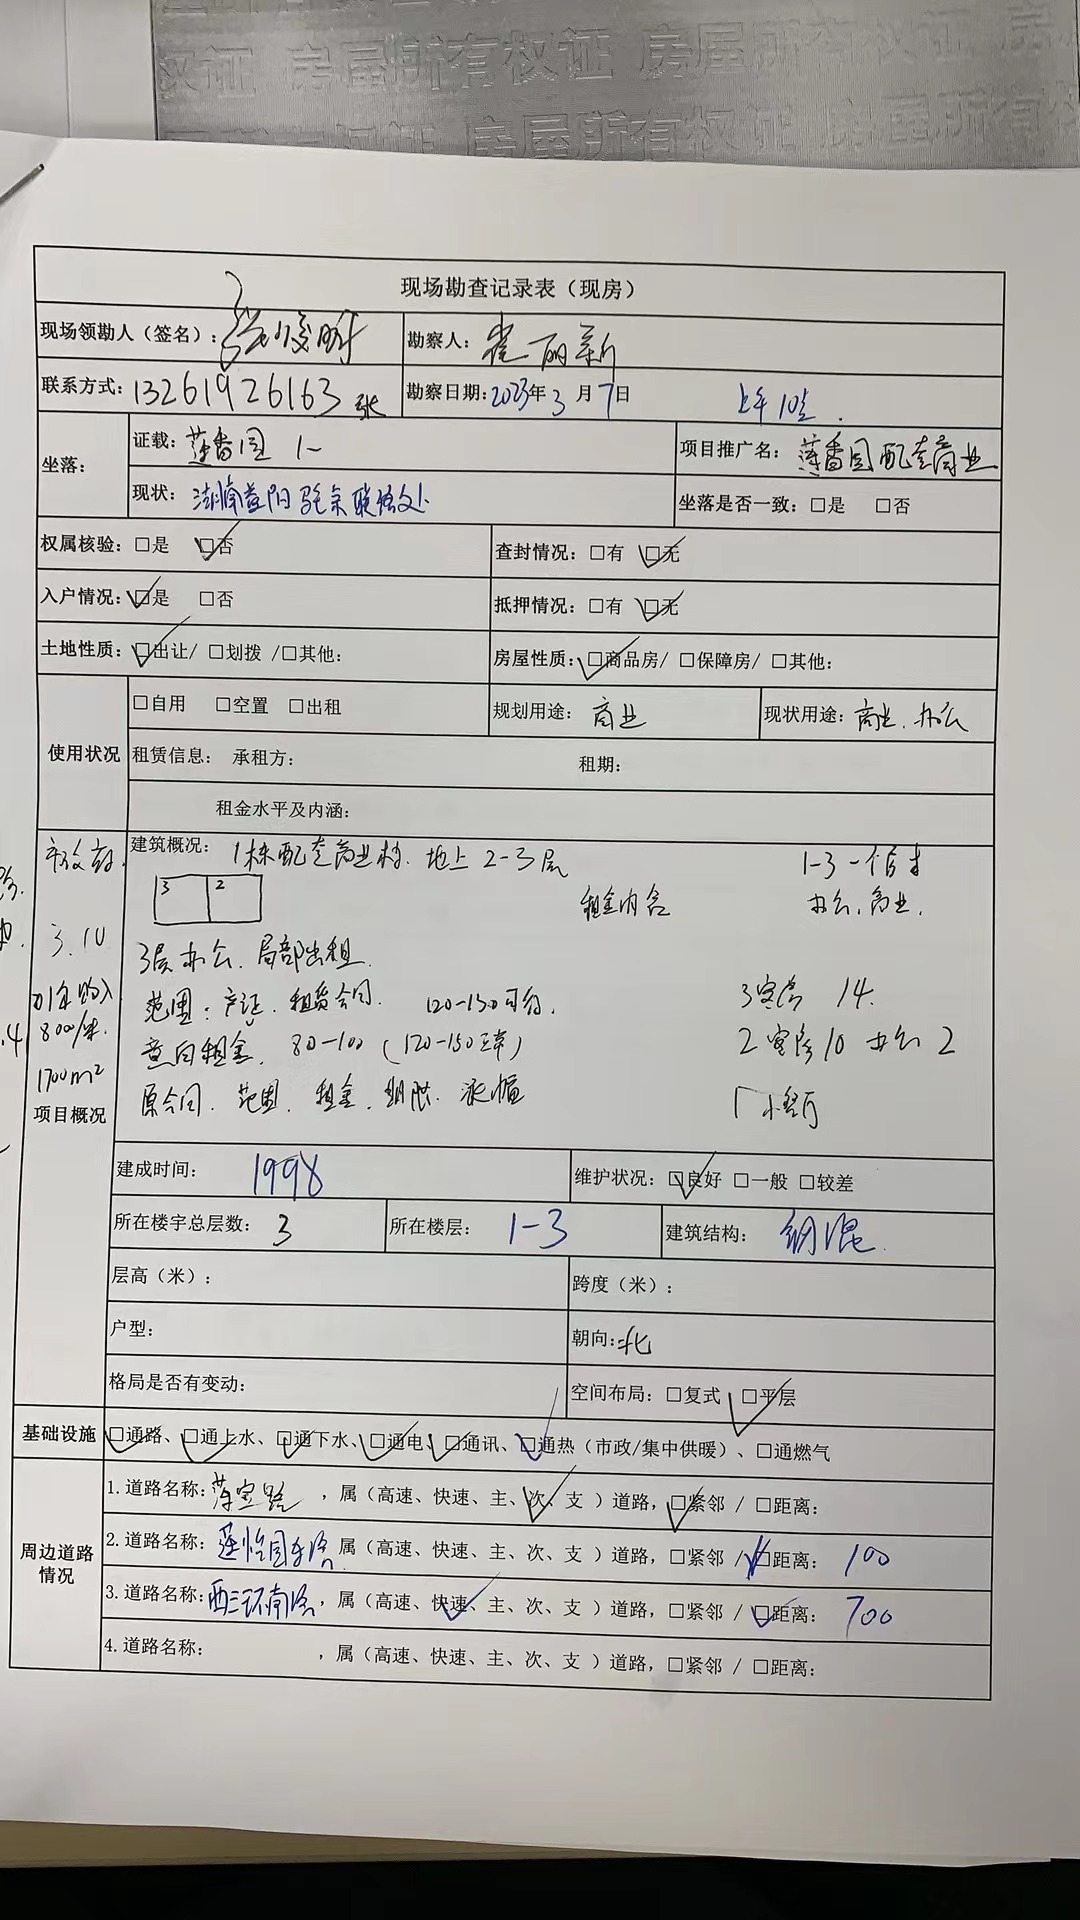 权证 房屋所有权证 房屋所有权证 房
房屋所有权证 房屋所有权
现场勘查记录表（现房）
现场领勘人（签名）：
勘察人：崔丽新
联系方式：13261926163 张
勘察日期：2023年3月7日 上午10点.
坐落：
证载：莲香园 1-
项目推广名：莲香园配套商业
现状：湖南益阳驻京联络处
坐落是否一致：□是 □否
权属核验：□是 ☑否
查封情况：□有 ☑无
入户情况：☑是 □否
抵押情况：□有 ☑无
土地性质：☑出让/ □划拨 /□其他：
房屋性质：☑商品房/ □保障房/ □其他：
使用状况
□自用 □空置 □出租
规划用途：商业
现状用途：商业、办公
租赁信息： 承租方： 租期：
租金水平及内涵：
建筑概况：1栋配套商业楼. 地上2-3层
1-3一个信
3 2
租金内含
办公、商业.
3.10
3层办公、局部出租.
01年购入
范围：产证、租赁合同. 120-150可行.
3客房 14.
800/米.
意向租金. 80-100（120-150正常）
2客房10 办公2
1700m²
原合同. 范围. 租金. 期限. 涨幅
1小餐厅
项目概况
建成时间： 1998
维护状况：☑良好 □一般 □较差
所在楼宇总层数： 3
所在楼层： 1-3
建筑结构： 钢混.
层高（米）：
跨度（米）：
户型：
朝向：北
格局是否有变动：
空间布局：□复式 ☑平层
基础设施
☑通路、☑通上水、☑通下水、☑通电、☑通讯、☑通热（市政/集中供暖）、□通燃气
周边道路情况
1.道路名称：莲宝路 ，属（高速、快速、主、次、支 ）道路，☑紧邻 / □距离：
2.道路名称：莲怡园东路 属（高速、快速、主、次、支 ）道路，□紧邻 / ☑距离： 100
3.道路名称：西三环南路，属（高速、快速、主、次、支 ）道路，□紧邻 / ☑距离： 700
4.道路名称： ，属（高速、快速、主、次、支 ）道路，□紧邻 / □距离：